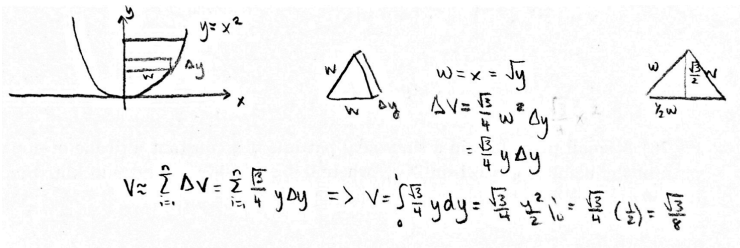 y
y = x²
w
Δy
x
w
w
Δy
w = x = √y
ΔV = √3/4 w² Δy
= √3/4 y Δy
w
√3/2
w
½w
V ≈ Σ_{i=1}^{n} ΔV = Σ_{i=1}^{n} √3/4 y Δy => V = ∫₀¹ √3/4 y dy = √3/4 y²/2 |₀¹ = √3/4 (½) = √3/8